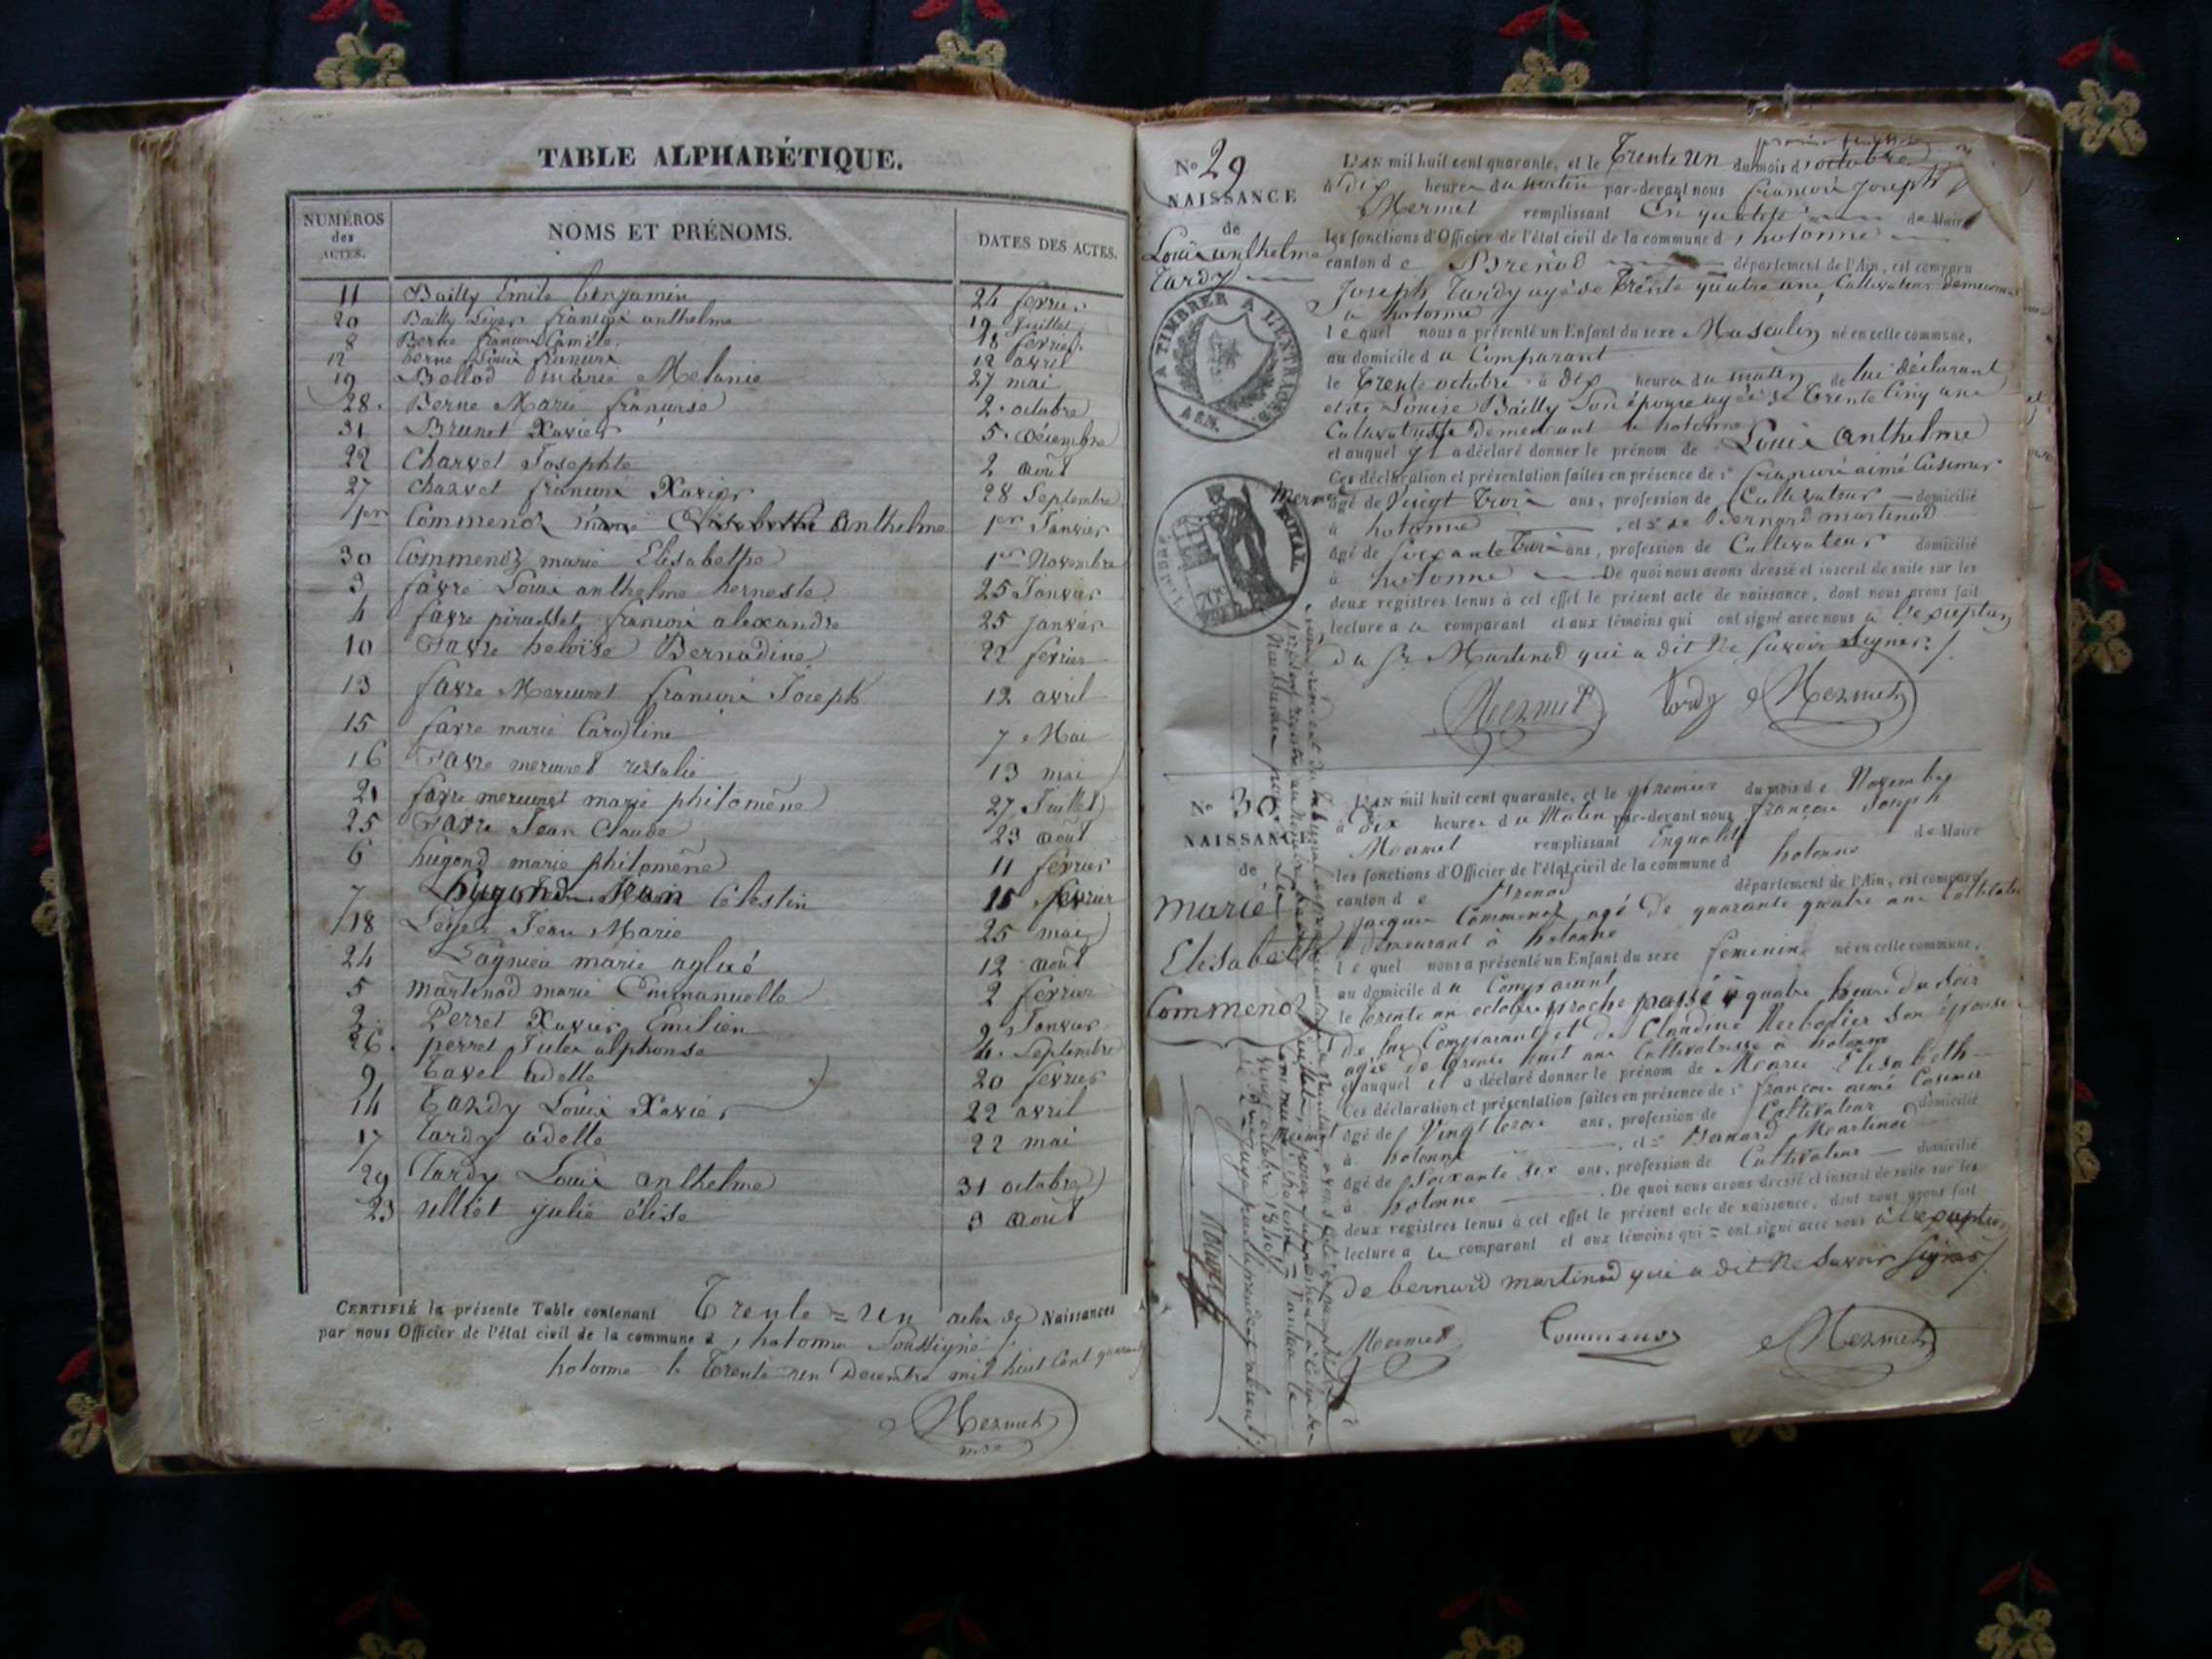 TABLE ALPHABÉTIQUE.
NUMÉROS des ACTES. NOMS ET PRÉNOMS. DATES DES ACTES.
11 Bailly Emile benjamin 24 fevrier
20 Bailly Leger françois anthelme 19 juillet
8 Berne françois Camile 18 fevrier
12 berne Louis françois 12 avril
19 Bellod marie Melanie 27 mai
28. Berne Marie françoise 2. octobre
31 Brunet Xavier 5. Décembre
22 Charvet Josephte 2 Août
27 charvet françois Xavier 28 Septembre
1er Commendz anthelme 1er Janvier
30 Commendz marie Elisabethe 1er Novembre
3 favre Louis anthelme herneste 25 Janvier
4 favre françois alexandre 25 janvier
10 Favre heloïse Bernadine 22 fevrier
13 favre Mercuret françois Joseph 12 avril
15 favre marie Caroline 7 Mai
16 Favre mercuret rosalie 13 mai
21 favre mercuret marie philomène 27 Juillet
25 Favre Jean Claude 23 août
6 hugond marie philomène 11 février
7 hugond Jean Celestin 15 fevrier
18 Leger Jean Marie 25 mai
24 Lagnieu marie aglaé 12 août
5 martinod marie Emmanuelle 2 fevrier
2. Perret Xavier Emilien 9 Janvier
26. perret Jules alphonse 4. Septembre
9 Tavel adelle 20 fevrier
14 Tardy Louis Xavier 22 avril
17 tardy adelle 22 mai
29 Tardy Louis anthelme 31 octobre
23 ulliet julie élise 9 août
CERTIFIÉ la présente Table contenant Trente = un actes de Naissances
par nous Officier de l'état civil de la commune d'hotonne Soussigné
hotonne le Trente un Decembre mil huit cent quarante
Mermet
mre
No 29
NAISSANCE
de
Louis anthelme
Tardy
A TIMBRER A L'EXTRAORD.
AIN.
TIMBRE ROYAL
L'AN mil huit cent quarante, et le Trente un du mois d'octobre
à Dix heures du matin par-devant nous françois Joseph
Mermet remplissant En qualité de Maire
les fonctions d'Officier de l'état civil de la commune d'hotonne
canton de Brenod département de l'Ain, est comparu
Joseph Tardy agé de Trente quatre ans, Cultivateur demeurant
a hotonne
lequel nous a présenté un Enfant du sexe Masculin né en cette commune,
au domicile du Comparant
le Trente octobre à Dix heures du matin de lui déclarant
et de Louise Bailly Son épouse agée de Trente Cinq ans
Cultivatrice demeurant a hotonne
et auquel il a déclaré donner le prénom de Louis anthelme
Ces déclaration et présentation faites en présence de 1° françois aimé Casimir
Mermet âgé de Vingt Trois ans, profession de Cultivateur domicilié
à hotonne et 2° de Bernard martinod
âgé de soixante ans, profession de Cultivateur domicilié
à hotonne De quoi nous avons dressé et inscrit de suite sur les
deux registres tenus à cet effet le présent acte de naissance, dont nous avons fait
lecture au comparant et aux témoins qui ont signé avec nous à l'exception
du Sr Martinod qui a dit Ne savoir Signer./.
Mermet tardy Mermet
No 30
NAISSANCE
de
marie
Elisabeth
Commendz
L'AN mil huit cent quarante, et le premier du mois de Novembre
à dix heures du Matin par-devant nous françois Joseph
Mermet remplissant Enqualité de Maire
les fonctions d'Officier de l'état civil de la commune d hotonne
canton de Brenod département de l'Ain, est comparu
Jacques Commendz agé de quarante quatre ans Cultivateur
demeurant à hotonne
lequel nous a présenté un Enfant du sexe feminin né en cette commune,
au domicile du Comparant
le trente un octobre proche passé à quatre heures du soir
de lui Comparant et de Claudine son épouse
agée de trente huit ans Cultivatrice a hotonne
et auquel il a déclaré donner le prénom de Marie Elisabeth
Ces déclaration et présentation faites en présence de 1° françois aimé Casimir
Mermet âgé de Vingt trois ans, profession de Cultivateur domicilié
à hotonne et 2° Bernard Martinod
âgé de Soixante six ans, profession de Cultivateur domicilié
à hotonne De quoi nous avons dressé et inscrit de suite sur les
deux registres tenus à cet effet le présent acte de naissance, dont nous avons fait
lecture au comparant et aux témoins qui ont signé avec nous à l'exception
de bernard martinod qui a dit Ne Savoir Signer./.
Mermet Commendz Mermet